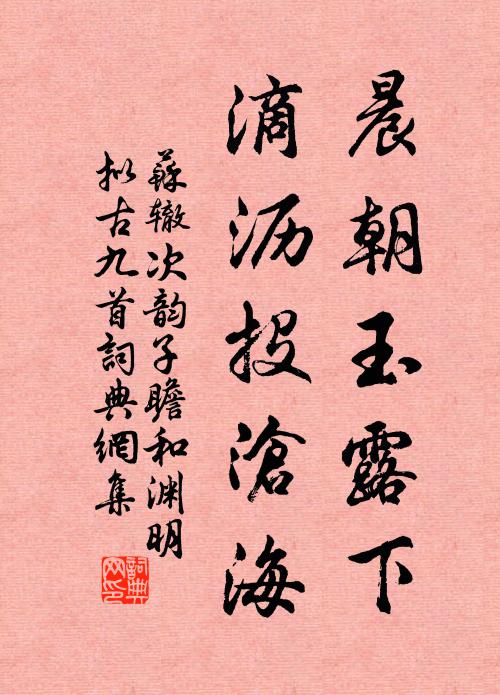 晨朝玉露下
滴沥投滄海
蘇辙次韵子瞻和渊明
拟古九首詞典網集
詞典
网印